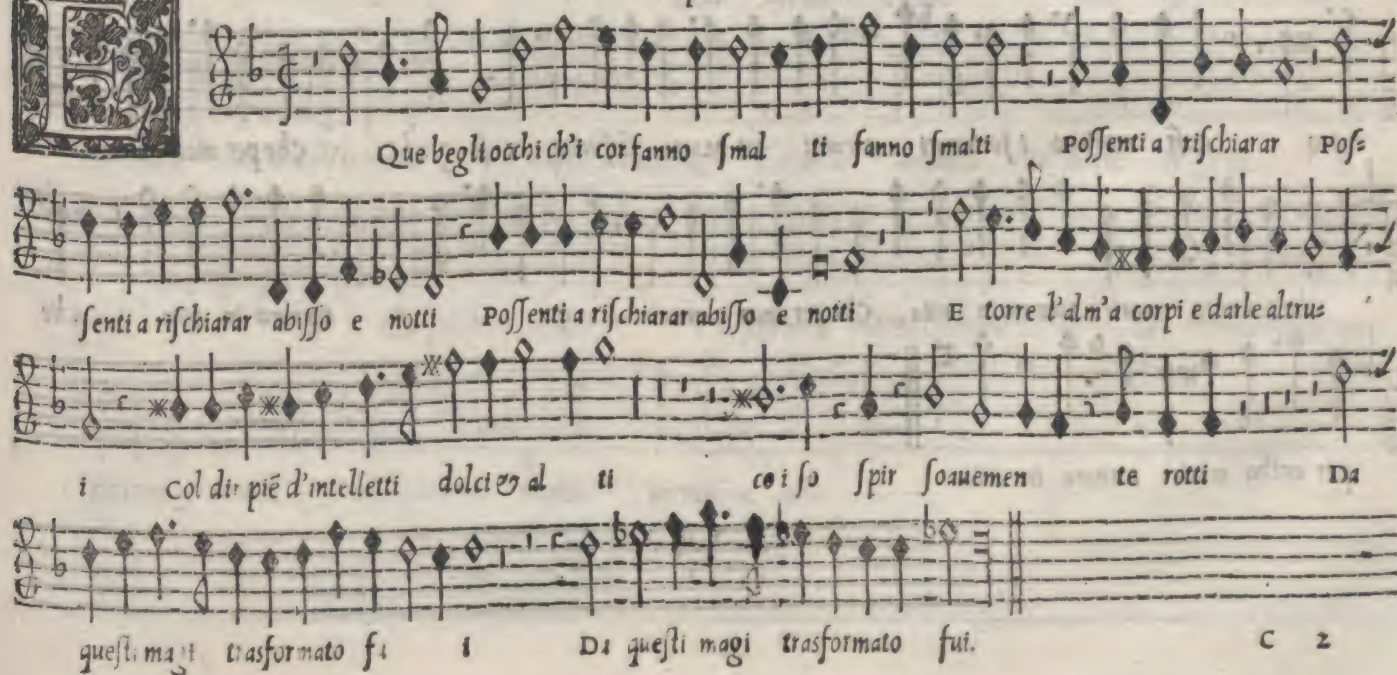 E
Que begli occhi ch'i cor fanno ſmal ti fanno ſmalti Poſſenti a riſchiarar Poſ=
ſenti a riſchiarar abiſſo e notti Poſſenti a riſchiarar abiſſo e notti E torre l'alm'a corpi e darle altru=
i Col dir piē d'intelletti dolci & al ti co i ſo ſpir ſoauemen te rotti Da
queſti magi trasformato fu i Da queſti magi trasformato fui.
C 2